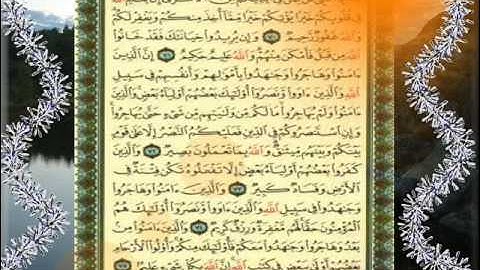 فِي قُلُوبِكُمْ خَيْرًا يُؤْتِكُمْ خَيْرًا مِّمَّا أُخِذَ مِنكُمْ وَيَغْفِرْ لَكُمْ
وَاللَّهُ غَفُورٌ رَّحِيمٌ ٧٠ وَإِن يُرِيدُوا خِيَانَتَكَ فَقَدْ خَانُوا
اللَّهَ مِن قَبْلُ فَأَمْكَنَ مِنْهُمْ وَاللَّهُ عَلِيمٌ حَكِيمٌ ٧١ إِنَّ الَّذِينَ
ءَامَنُوا وَهَاجَرُوا وَجَاهَدُوا بِأَمْوَالِهِمْ وَأَنفُسِهِمْ فِي سَبِيلِ
اللَّهِ وَالَّذِينَ ءَاوَوا وَّنَصَرُوا أُولَٰئِكَ بَعْضُهُمْ أَوْلِيَاءُ بَعْضٍ وَالَّذِينَ
ءَامَنُوا وَلَمْ يُهَاجِرُوا مَا لَكُم مِّن وَلَايَتِهِم مِّن شَيْءٍ حَتَّىٰ يُهَاجِرُوا
وَإِنِ اسْتَنصَرُوكُمْ فِي الدِّينِ فَعَلَيْكُمُ النَّصْرُ إِلَّا عَلَىٰ قَوْمٍ
بَيْنَكُمْ وَبَيْنَهُم مِّيثَاقٌ وَاللَّهُ بِمَا تَعْمَلُونَ بَصِيرٌ ٧٢ وَالَّذِينَ
كَفَرُوا بَعْضُهُمْ أَوْلِيَاءُ بَعْضٍ إِلَّا تَفْعَلُوهُ تَكُن فِتْنَةٌ فِي
الْأَرْضِ وَفَسَادٌ كَبِيرٌ ٧٣ وَالَّذِينَ ءَامَنُوا وَهَاجَرُوا
وَجَاهَدُوا فِي سَبِيلِ اللَّهِ وَالَّذِينَ ءَاوَوا وَّنَصَرُوا أُولَٰئِكَ هُمُ
الْمُؤْمِنُونَ حَقًّا لَّهُم مَّغْفِرَةٌ وَرِزْقٌ كَرِيمٌ ٧٤ وَالَّذِينَ ءَامَنُوا مِن
بَعْدُ وَهَاجَرُوا وَجَاهَدُوا مَعَكُمْ فَأُولَٰئِكَ مِنكُمْ وَأُولُوا الْأَرْحَامِ
بَعْضُهُمْ أَوْلَىٰ بِبَعْضٍ فِي كِتَابِ اللَّهِ إِنَّ اللَّهَ بِكُلِّ شَيْءٍ عَلِيمٌ